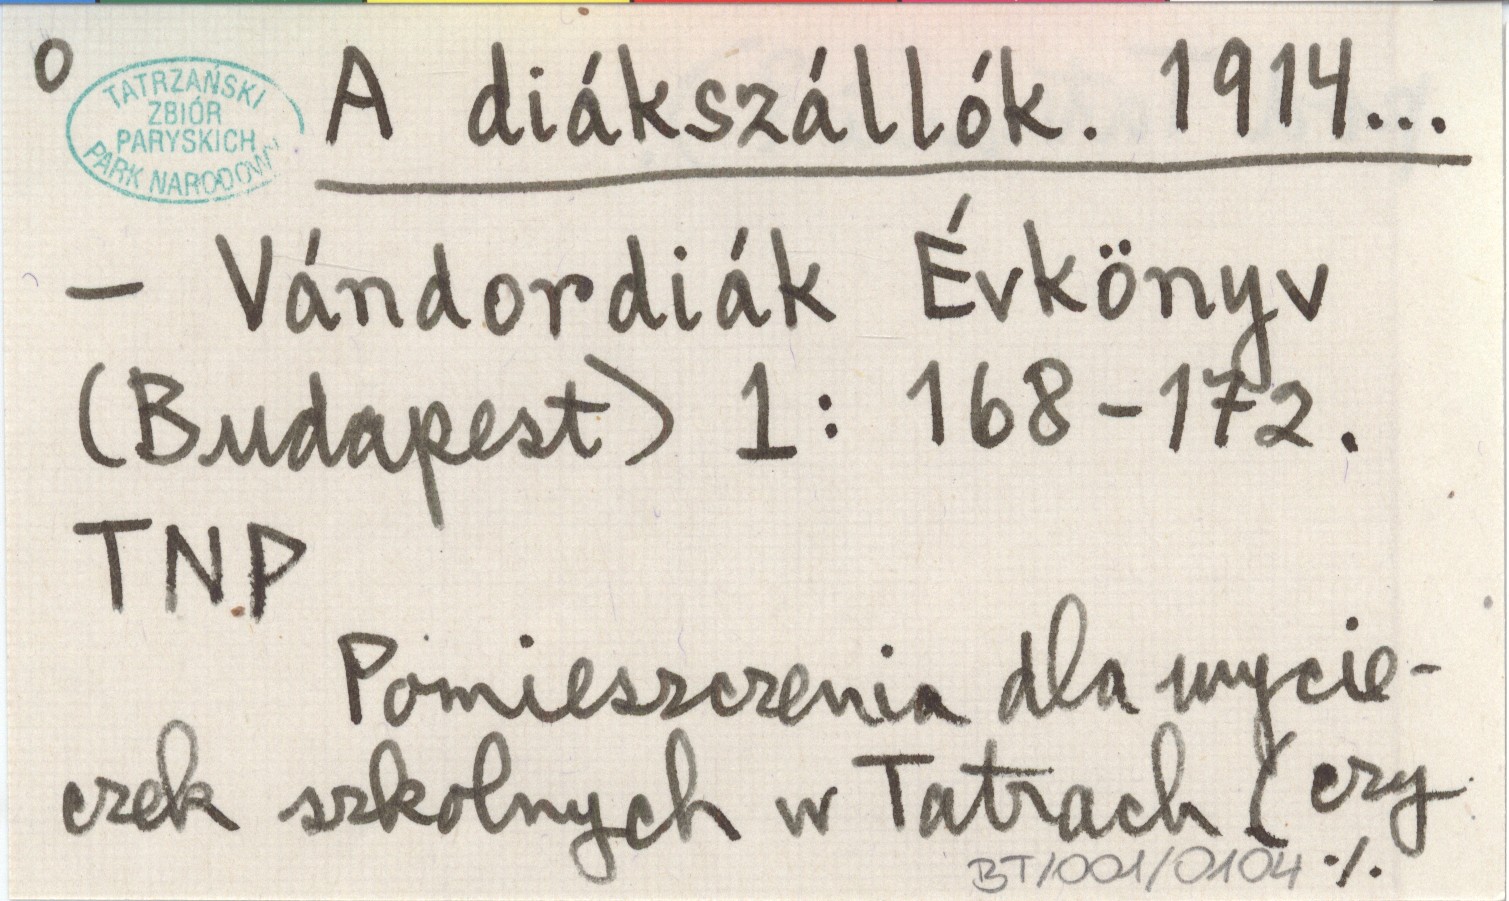 o
TATRZAŃSKI
ZBIÓR
PARYSKICH
PARK NARODOWY
A diákszállók. 1914...
– Vándordiák Évkönyv
(Budapest) 1: 168–172.
TNP
Pomieszczenia dla wycie-
czek szkolnych w Tatrach (czy
BT/001/0104 ·/.